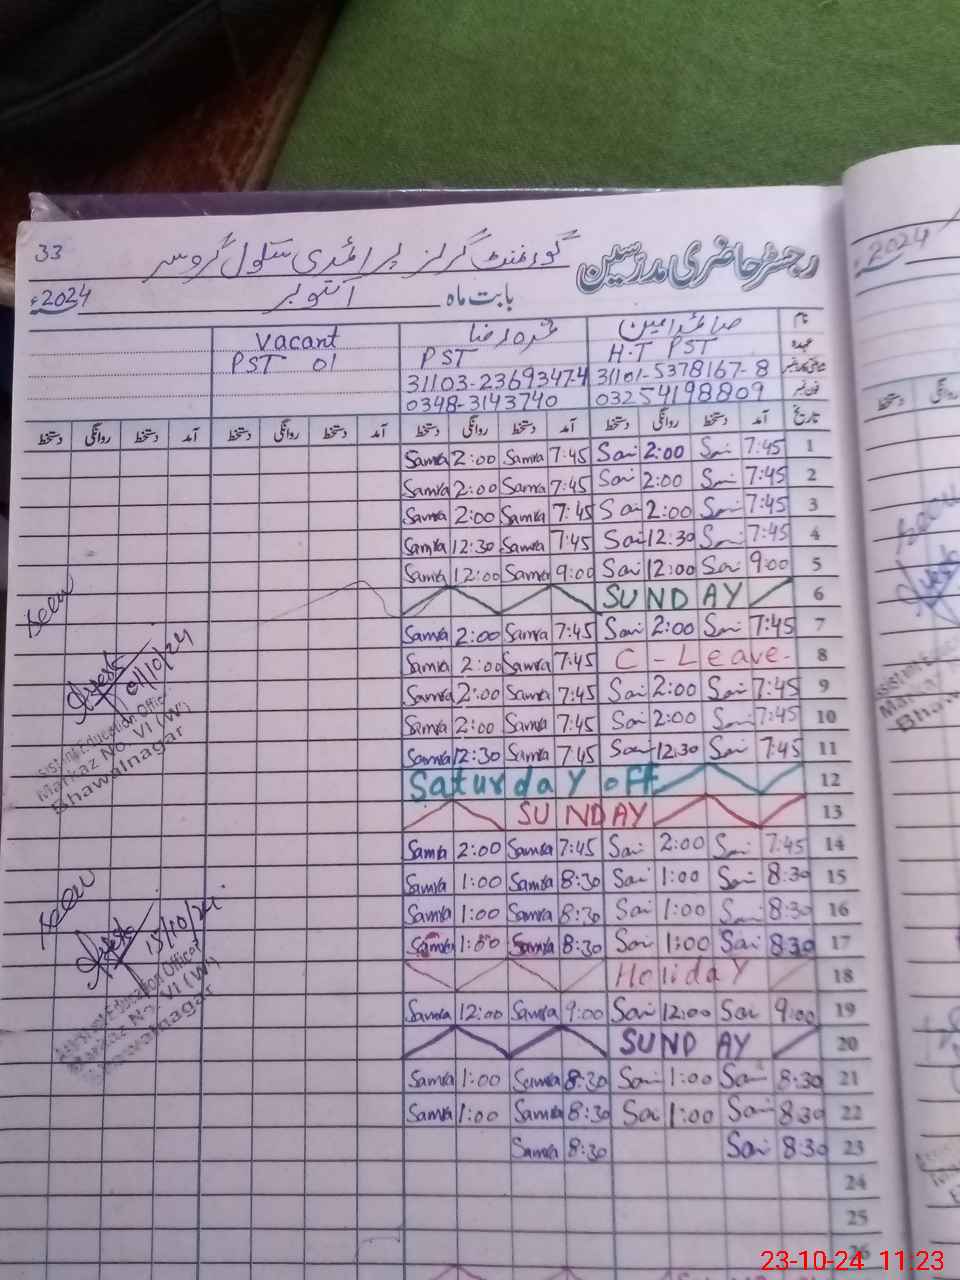 33
رجسٹر حاضری مدرسین گورنمنٹ گرلز پرائمری سکول
بابت ماہ اکتوبر 2024ء
نام صائمہ امین ثمرہ رضا Vacant
عہدہ H.T PST PST PST 01
31101-5378167-8 31103-2369347-4
فون نمبر 03254198809 0348-3143740
تاریخ آمد دستخط روانگی دستخط آمد دستخط روانگی دستخط آمد دستخط روانگی دستخط آمد دستخط روانگی دستخط
1 7:45 Sai 2:00 Sai 7:45 Samra 2:00 Samra
2 7:45 Sai 2:00 Sai 7:45 Samra 2:00 Samra
3 7:45 Sai 2:00 Sai 7:45 Samra 2:00 Samra
4 7:45 Sai 12:30 Sai 7:45 Samra 12:30 Samra
5 9:00 Sai 12:00 Sai 9:00 Samra 12:00 Samra
6 SUNDAY
7 7:45 Sai 2:00 Sai 7:45 Samra 2:00 Samra
8 C-Leave 7:45 Samra 2:00 Samra
9 7:45 Sai 2:00 Sai 7:45 Samra 2:00 Samra
10 7:45 Sai 2:00 Sai 7:45 Samra 2:00 Samra
11 7:45 Sai 12:30 Sai 7:45 Samra 12:30 Samra
12 Saturday off
13 SUNDAY
14 7:45 Sai 2:00 Sai 7:45 Samra 2:00 Samra
15 8:30 Sai 1:00 Sai 8:30 Samra 1:00 Samra
16 8:30 Sai 1:00 Sai 8:30 Samra 1:00 Samra
17 8:30 Sai 1:00 Sai 8:30 Samra 1:00 Samra
18 Holiday
19 9:00 Sai 12:00 Sai 9:00 Samra 12:00 Samra
20 SUNDAY
21 8:30 Sai 1:00 Sai 8:30 Samra 1:00 Samra
22 8:30 Sai 1:00 Sai 8:30 Samra 1:00 Samra
23 8:30 Sai 8:30 Samra
24
25
26
Seen
01/10/24
Assistant Education Officer
Markaz No. VI (W)
Bhawalnagar
Seen
15/10/24
Assistant Education Officer
Markaz No. VI (W)
Bhawalnagar
2024ء
Seen
دستخط
23-10-24 11:23